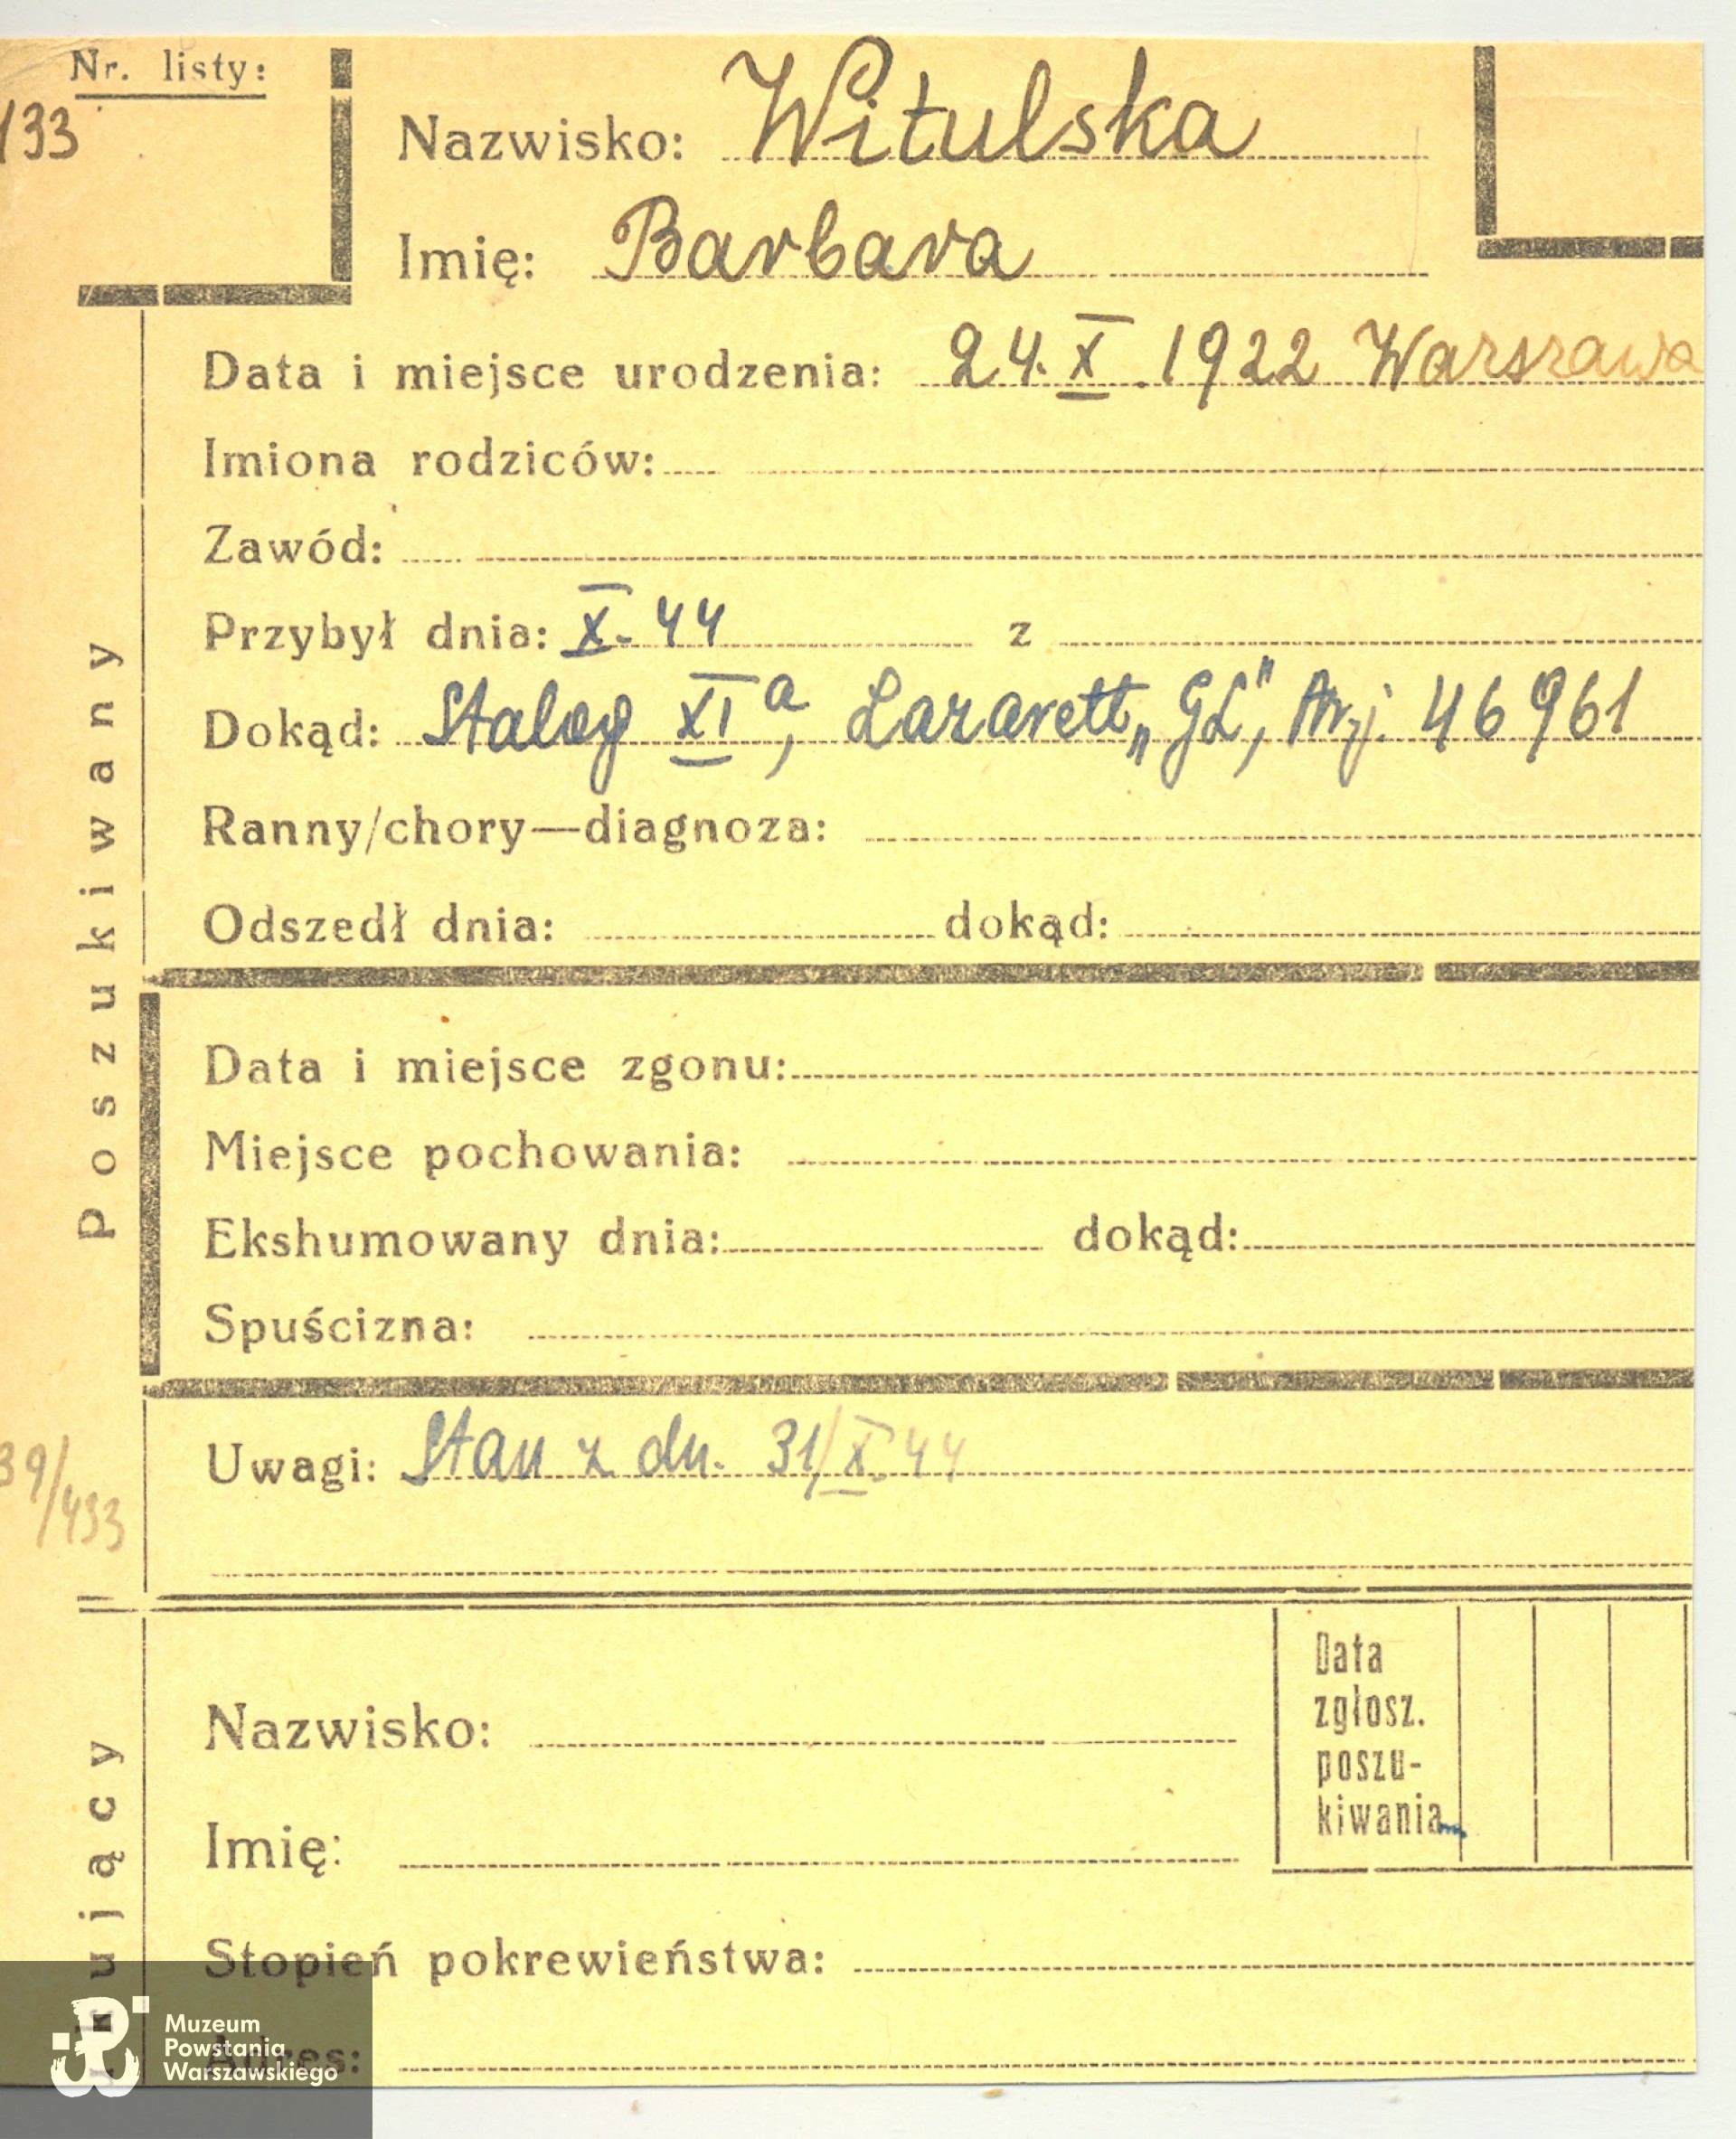 Nr. listy:
133
Nazwisko: Witulska
Imię: Barbara
Data i miejsce urodzenia: 24.X.1922 Warszawa
Imiona rodziców:
Zawód:
Przybył dnia: X.44 z
Dokąd: Stalag XI a, Lazarett „GL”, 46961
Ranny/chory—diagnoza:
Odszedł dnia: dokąd:
Poszukiwany
Data i miejsce zgonu:
Miejsce pochowania:
Ekshumowany dnia: dokąd:
Spuścizna:
Uwagi: Stan z dn. 31/X.44
39/433
Nazwisko:
Data
zgłosz.
poszu-
kiwania
Imię:
Stopień pokrewieństwa:
Adres:
Muzeum
Powstania
Warszawskiego